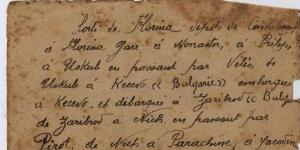 Sorti de Florina dépôts de
à Florina gare, à Monastir, à Prilep,
à Uskub en passant par Vélès, de
Uskub à Kecevo (( Bulgarie )) embarqué
à Kecevo, et débarqué à Zaribrod (( Bulg
de Zaribrod à Nich en passant par
Pirot, de Nich à Parachine, à